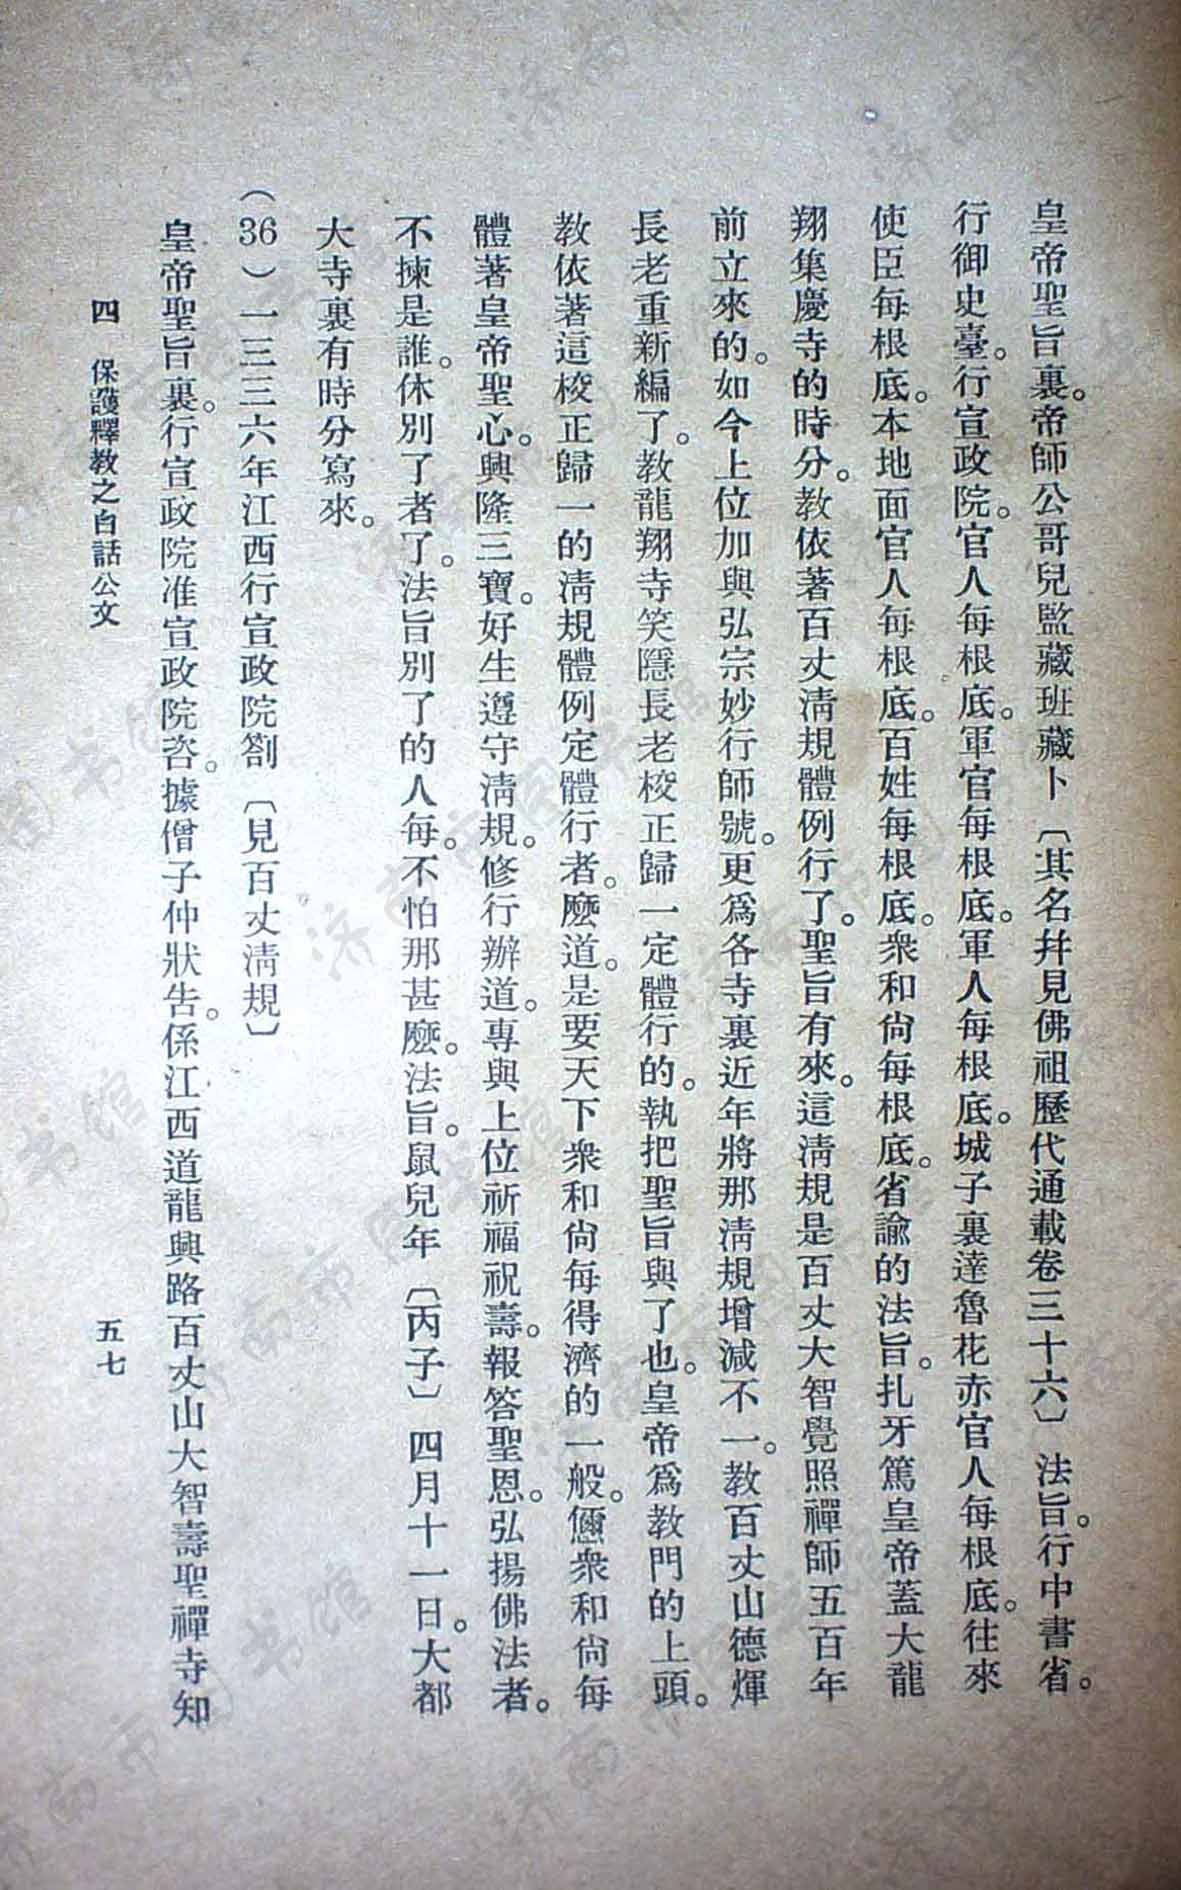 皇帝聖旨裏。帝師公哥兒監藏班藏卜〔其名幷見佛祖歷代通載卷三十六〕法旨。行中書省。
行御史臺。行宣政院。官人每根底。軍官每根底。軍人每根底。城子裏達魯花赤官人每根底。往來
使臣每根底。本地面官人每根底。百姓每根底。衆和尙每根底。省諭的法旨。扎牙篤皇帝蓋大龍
翔集慶寺的時分。教依著百丈淸規體例行了。聖旨有來。這淸規是百丈大智覺照禪師五百年
前立來的。如今上位加與弘宗妙行師號。更爲各寺裏近年將那淸規增減不一。教百丈山德煇
長老重新編了。教龍翔寺笑隱長老校正歸一定體行的。執把聖旨與了也。皇帝爲教門的上頭。
教依著這校正歸一的淸規體例定體行者。麽道。是要天下衆和尙每得濟的一般。儞衆和尙每
體著皇帝聖心。興隆三寶。好生遵守淸規。修行辦道。專與上位祈福祝壽。報答聖恩。弘揚佛法者。
不揀是誰。休別了者了。法旨別了的人每。不怕那甚麽。法旨。鼠兒年〔丙子〕四月十一日。大都
大寺裏有時分寫來。
(36)一三三六年江西行宣政院劄〔見百丈淸規〕
皇帝聖旨裏。行宣政院准宣政院咨。據僧子仲狀告。係江西道龍興路百丈山大智壽聖禪寺知
四　保護釋教之白話公文　五七